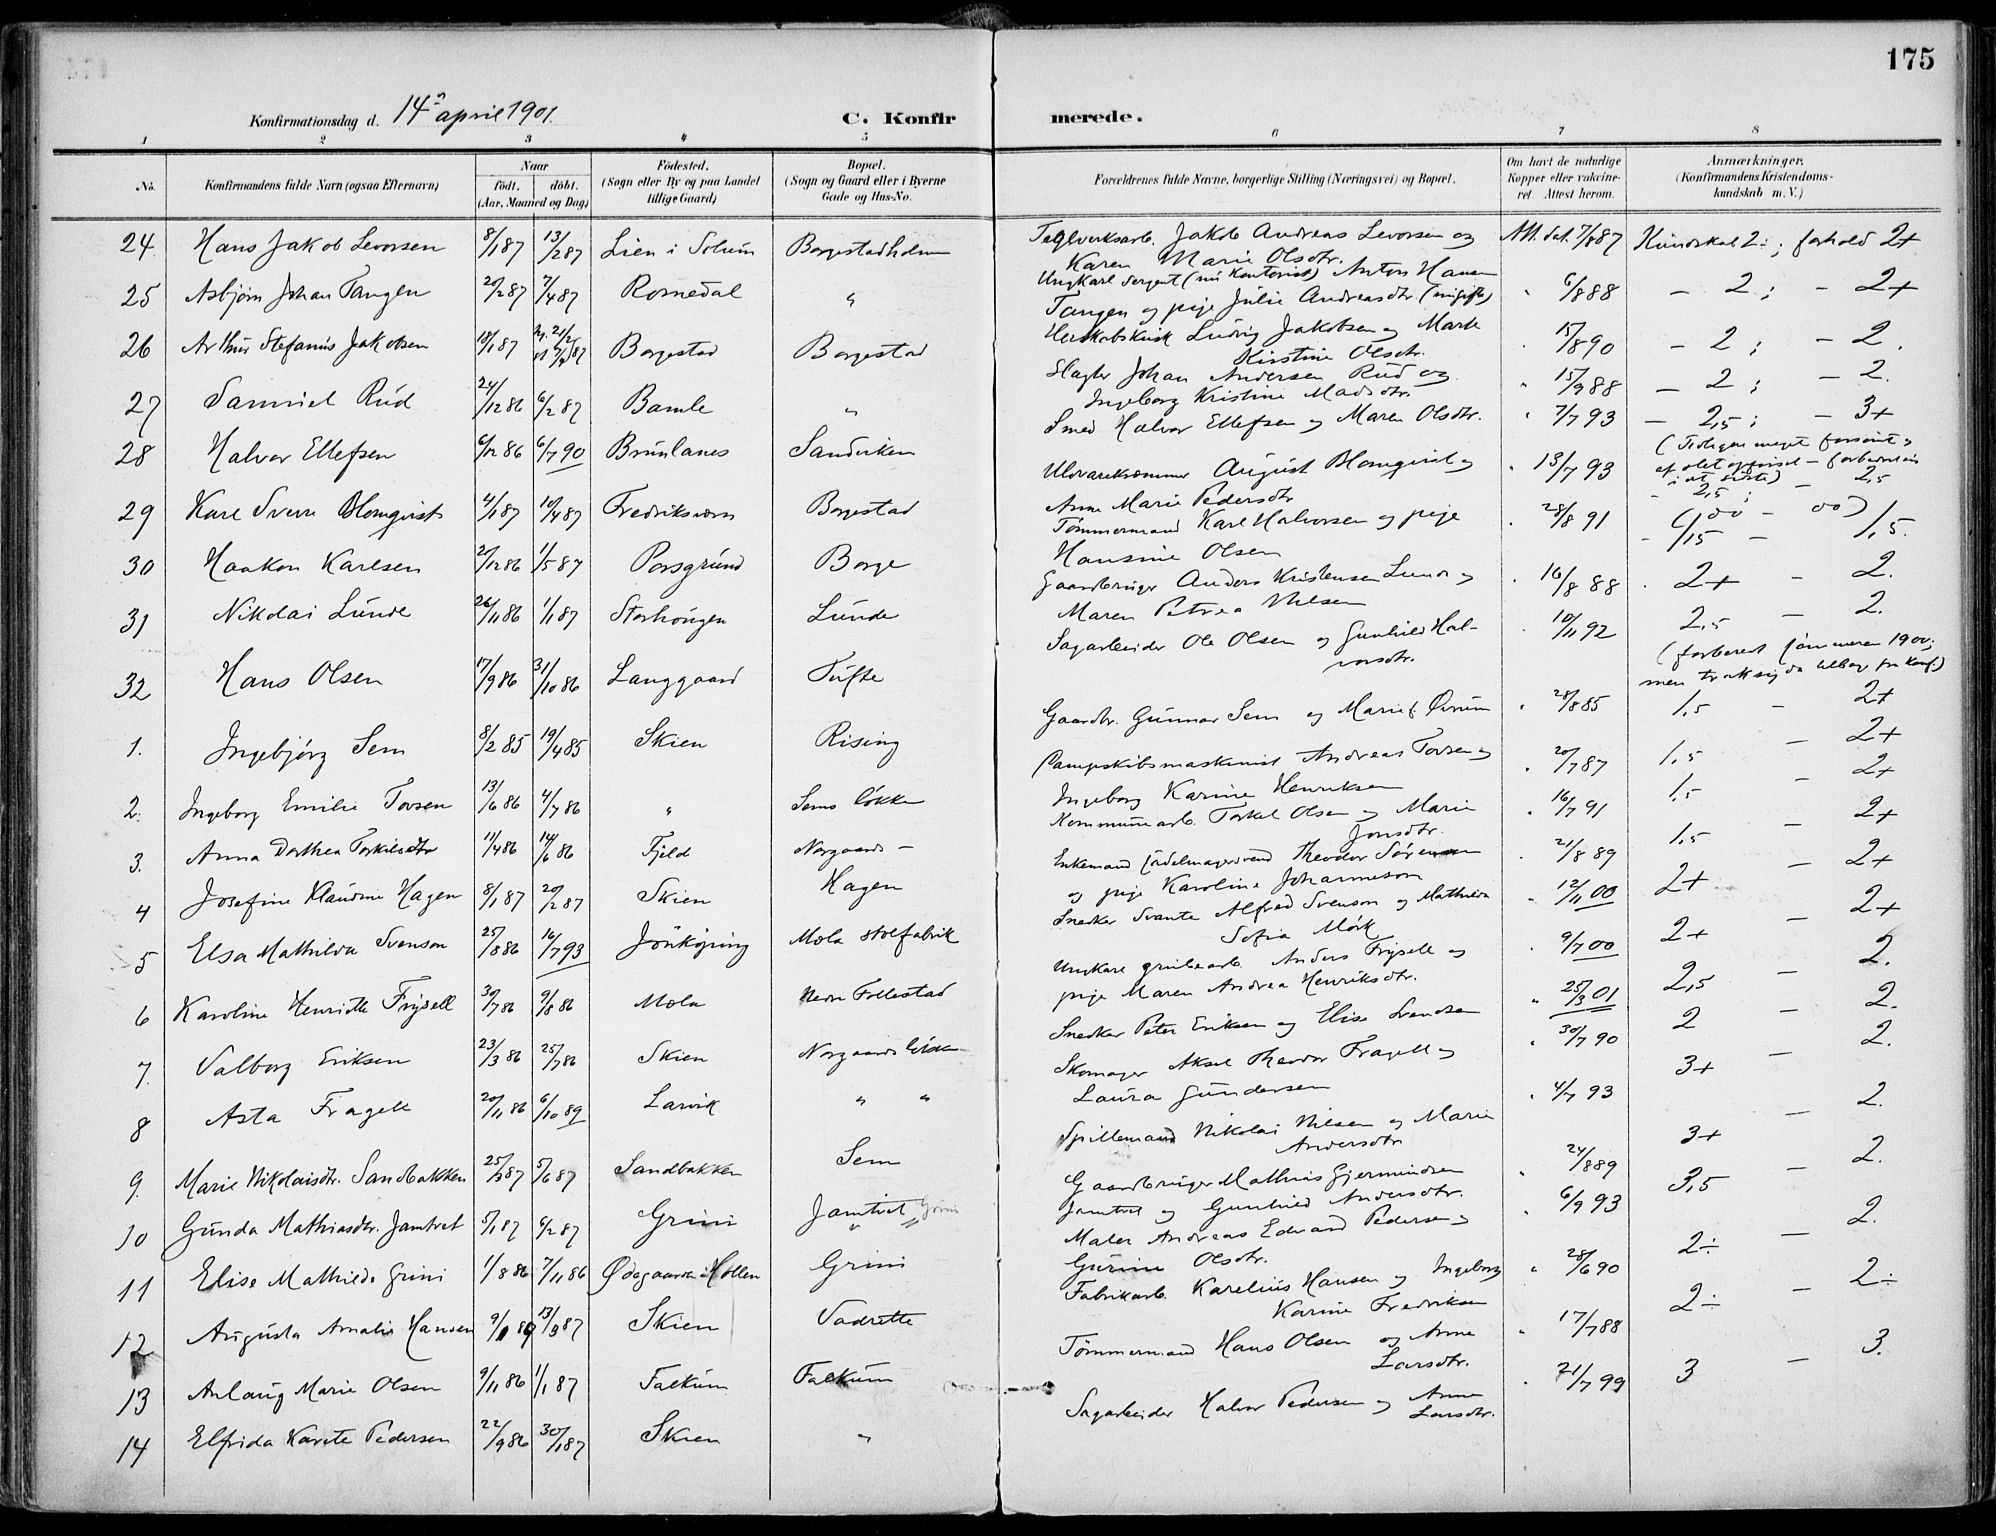 175
Konfirmationsdag d. 14de april 1901.
C. Konfirmerede.
1 2 3 4 5 6 7 8
No. | Konfirmandens fulde Navn (ogsaa Efternavn) | Naar født. døbt. (Aar, Maaned og Dag) | Fødested. (Sogn eller By og paa Landet tillige Gaard) | Bopæl. (Sogn og Gaard eller i Byerne Gade og Hus-No. | Forældrenes fulde Navne, borgerlige Stilling (Næringsvei) og Bopæl. | Om havt de naturlige Kopper eller vakcineret. Attest herom. | Anmærkninger. (Konfirmandens Kristendomskundskab m. V.)
24. Hans Jakob Levorsen 8/1 87 13/2 87 Lien i Solum Borgestadholm Teglverksarb. Jakob Andreas Levorsen og Karen Marie Olsdtr. Att. dat. 7/8 87 Kundskab 2÷; forhold 2+
25 Asbjørn Johan Tangen 20/2 87 7/4 87 Romedal " Ungkarl Sergent (nu Kontorist) Anton Hansen Tangen og pige Julie Andreasdtr. (ugifte) " 6/8 88 – 2; – 2+
26 Arthur Stefanus Jakobsen 18/1 87 Borgestad Borgestad Herskabskusk Ludvig Jakobsen og Marte Kirstine Olsdtr. " 15/8 90 – 2; – 2.
27 Samuel Rud 24/12 86 6/2 87 Bamle " Slagter Johan Andersen Rud og Ingeborg Kristine Madsdtr. " 15/9 88 – 2; – 2.
28 Halvor Ellefsen 6/12 86 6/7 90 Brunlanes Sandviken Smed Halvor Ellefsen og Maren Olsdtr. " 7/7 93 – 2,5; – 3+
(Tidligere meget forsømt
29 Karl Sverre Blomqvist 4/1 87 10/4 87 Fredriksværn Borgestad Uldvarekræmmer August Blomqvist og Anne Marie Pedersdtr " 13/7 93 – 2,5; – 2,5
30 Haakon Karlsen 27/12 86 1/5 87 Porsgrund Borge Tømmermand Karl Halvorsen og pige Hansine Olsen " 28/8 91 – 1,5 – 1,5.
31 Nikolai Lunde 26/11 86 1/1 87 Storhougen Lunde Gaardbruger Anders Kristensen Lunde og Maren Petrea Nilsen " 16/8 88 2+ – 2.
32 Hans Olsen 17/9 86 31/10 86 Langgaard Tufte Sagarbeider Ole Olsen og Gunhild Halvorsdtr. " 10/11 92 2,5 – 2.
(forberedt sommeren 1900; men trak sig da tilbage fra Konf.)
1. Ingebjørg Sem 8/2 85 19/4 85 Skien Rising Gaardbr. Gunnar Sem og Marie f. Øvrum " 28/8 85 1,5 – 2+
2. Ingeborg Emilie Tovsen 13/6 86 4/7 86 " Sems løkke Dampskibsmaskinist Andreas Tovsen og Ingeborg Karine Henriksen " 20/7 87 1,5 – 2+
3. Anna Dorthea Torkilsdtr 11/4 86 14/6 86 Fjeld Norgaards – Kommunearb. Torkel Olsen og Marie Jonsdtr. " 16/7 91 1,5 – 2+
4 Josefine Klaudine Hagen 8/1 87 20/2 87 Skien Hagen Enkemand sadelmagersvend Theodor Sørensen og pige Karoline Johannesen " 21/8 89 1,5 – 2+
5 Elsa Mathilda Svenson 25/8 86 16/7 93 Jönköping Mæla stolfabrik Snedker Svante Alfred Svenson og Mathilda Sofia Mörk " 12/11 00 2+ – 2+
6 Karoline Henriette Frysell 30/7 86 9/8 86 Mæla Nedre Follestad Ungkarl grubearb. Anders Frysell og pige Maren Andrea Henriksdtr. " 9/7 00 2+ – 2+
7. Valborg Eriksen 23/3 86 25/7 86 Skien Norgaards løkke Snedker Peter Eriksen og Elise Svendsen " 25/3 01 2,5 – 2.
8 Asta Fragell 20/11 86 6/10 89 Larvik " " Skomager Aksel Theodor Fragell og Laura Gundersen " 30/7 90 2 – 2.
9. Marie Nikolaisdtr. Sandbakken 25/3 87 5/6 87 Sandbakken Sem Spillemand Nikolai Nilsen og Marie Andersdtr " 4/7 93 3+ – 2.
10 Gunda Mathiasdtr. Jamtvet 5/1 87 6/2 87 Grini Jamtvet Grini Gaardbruger Mathias Gjermundsen Jamtvet og Gunhild Andersdtr. " 24/8 89 3+ – 2.
11 Elise Mathilde Grini 1/8 86 7/11 86 Ødegaarden i Hollen Grini Maler Andreas Edvard Pedersen og Gurine Olsdtr. " 6/9 93 3,5 – 2.
12 Augusta Amalie Hansen 9/1 87 13/3 87 Skien Vadrette Fabrikarb. Karelius Hansen og Ingeborg Karine Fredriksen " 28/6 90 2÷ – 2.
13 Anlaug Marie Olsen 9/11 86 1/1 87 Falkum Falkum Tømmermand Hans Olsen og Anne Larsdtr. " 17/7 88 2÷ – 2÷
14 Elfrida Karete Pedersen 22/9 86 30/1 87 Skien " Sagarbeider Halvor Pedersen og Anne Larsdtr. " 21/7 99 3 – 3.